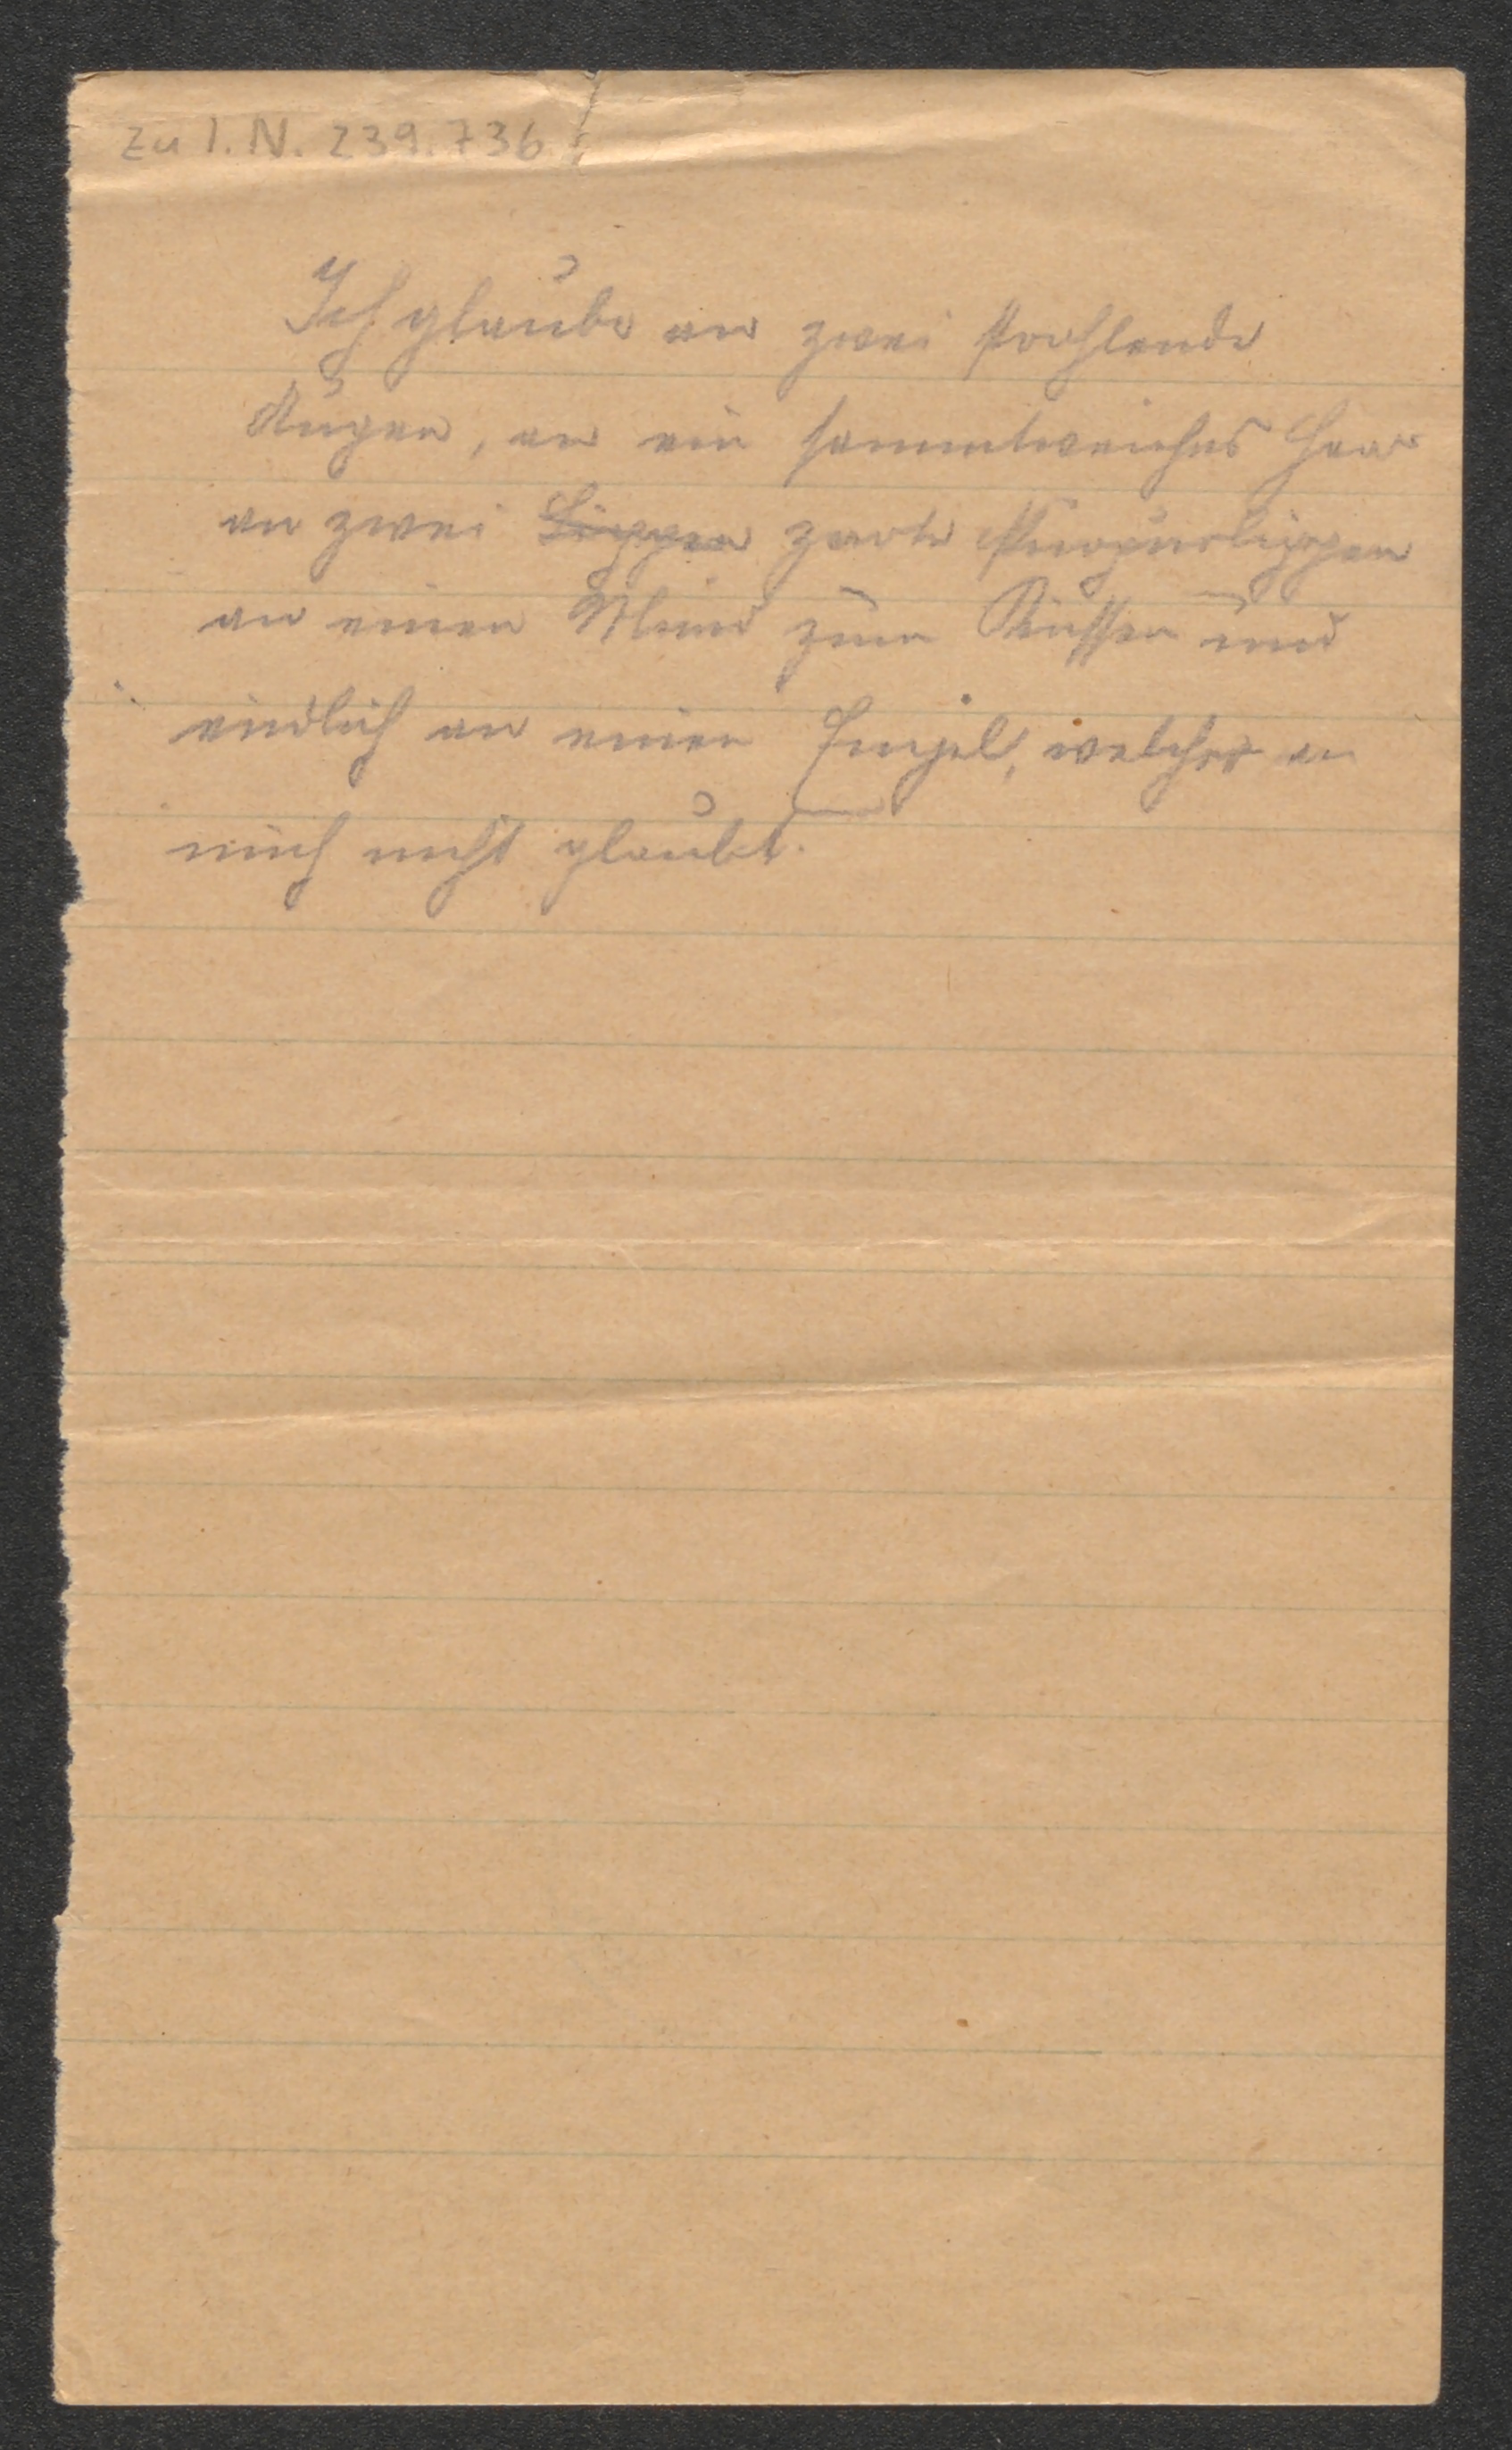 Zu I.N. 239.736
Ich glaube an zwei strahlende
Augen, an ein sammtweiches Haar
an zwei Lippen zarte Purpurlippen
an einen Mund zum Küssen und
endlich an einen Engel, welcher an
mich nicht glaubt.